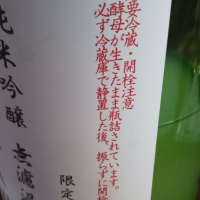 要冷蔵・開栓注意
酵母が生きたまま瓶詰されています。
必ず冷蔵庫で静置した後、振らずに開栓
純米吟醸 無濾過
限定